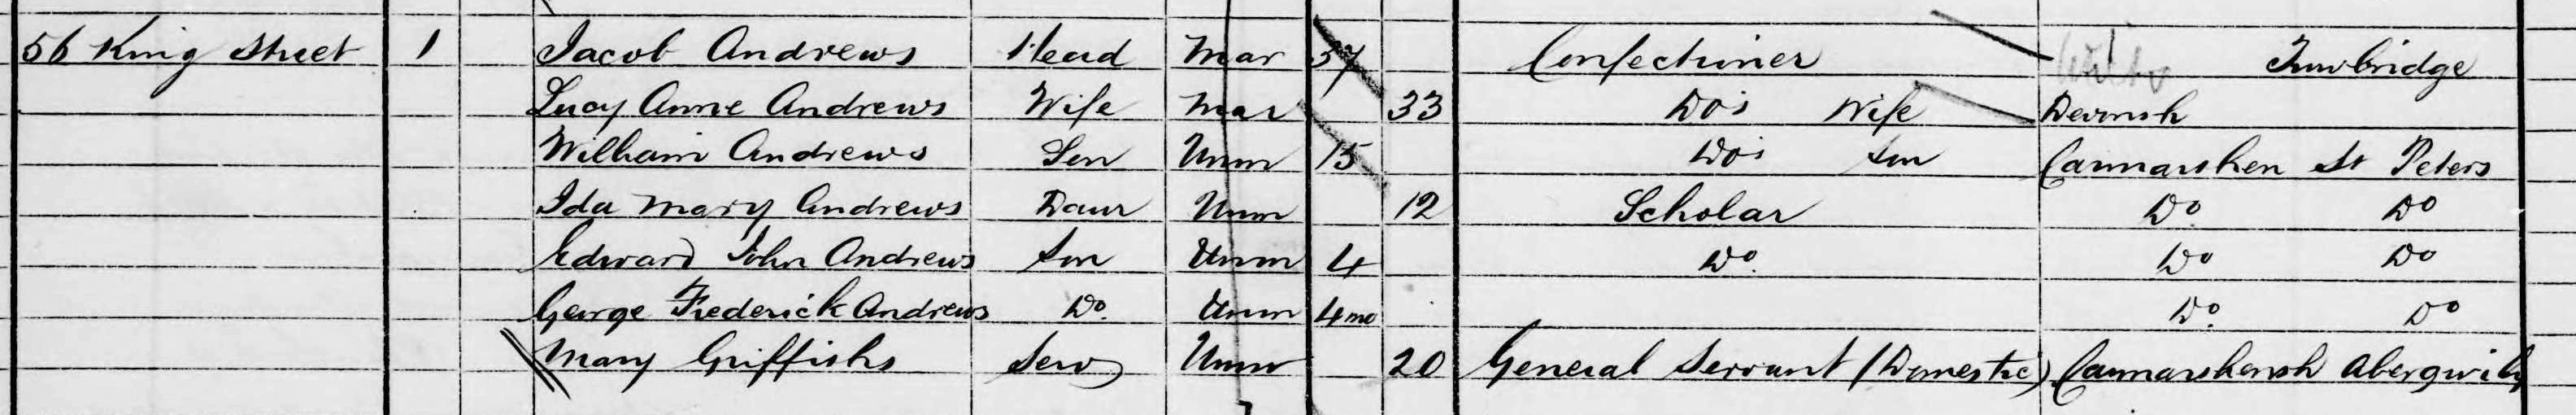 56 King Street 1 Jacob Andrews Head Mar 37 Confectioner Wilts Trowbridge
Lucy Annie Andrews Wife Mar 33 Do's Wife Devonsh
William Andrews Son Unm 15 Do's Son Carmarthen St Peters
Ida Mary Andrews Daur Unm 12 Scholar Do Do
Edward John Andrews Son Unm 4 Do. Do Do
George Frederick Andrews Do. Unm 4mo Do. Do
Mary Griffiths Serv Unm 20 General Servant (Domestic) Carmarthensh Abergwily